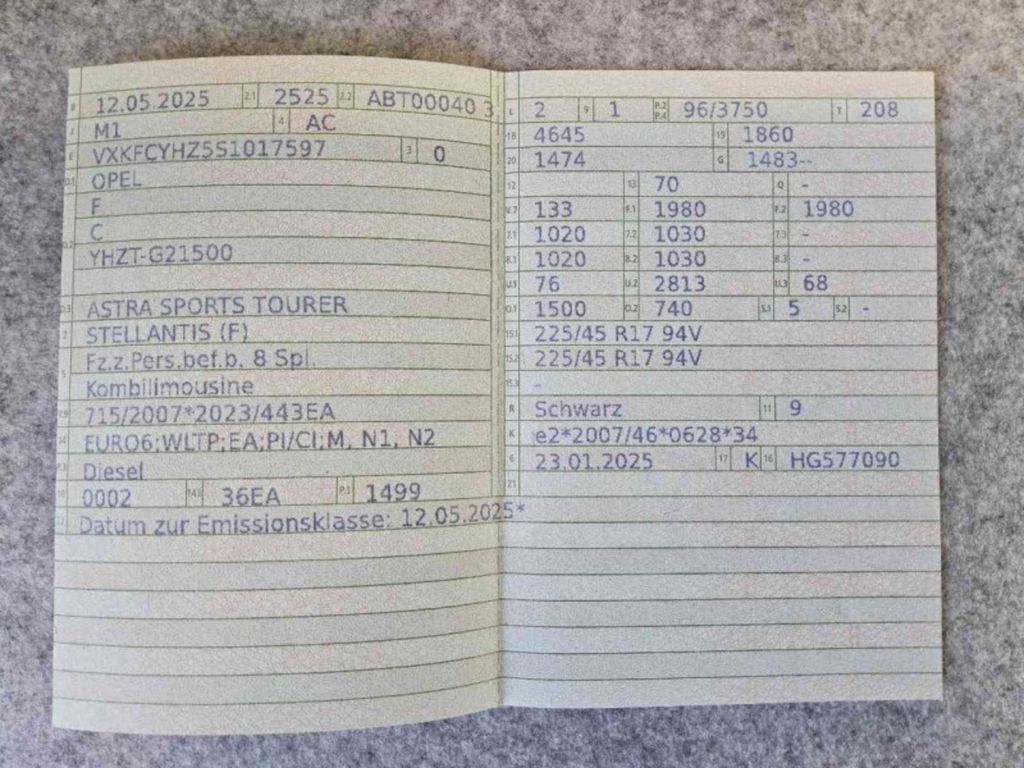 B 12.05.2025 2.1 2525 2.2 ABT00040 3
J M1 4 AC
E VXKFCYHZ5S1017597 3 0
D.1 OPEL
F
D.2 C
YHZT-G21500
D.3 ASTRA SPORTS TOURER
2 STELLANTIS (F)
5 Fz.z.Pers.bef.b. 8 Spl.
Kombilimousine
V.9 715/2007*2023/443EA
14 EURO6;WLTP;EA;PI/CI;M, N1, N2
P.3 Diesel
10 0002 14.1 36EA P.1 1499
22 Datum zur Emissionsklasse: 12.05.2025*
L 2 9 1 P.2 P.4 96/3750 T 208
18 4645 19 1860
20 1474 G 1483--
12 13 70 Q -
V.7 133 F.1 1980 F.2 1980
7.1 1020 7.2 1030 7.3 -
8.1 1020 8.2 1030 8.3 -
U.1 76 U.2 2813 U.3 68
O.1 1500 O.2 740 S.1 5 S.2 -
15.1 225/45 R17 94V
15.2 225/45 R17 94V
15.3 -
R Schwarz 11 9
K e2*2007/46*0628*34
6 23.01.2025 17 K 16 HG577090
21